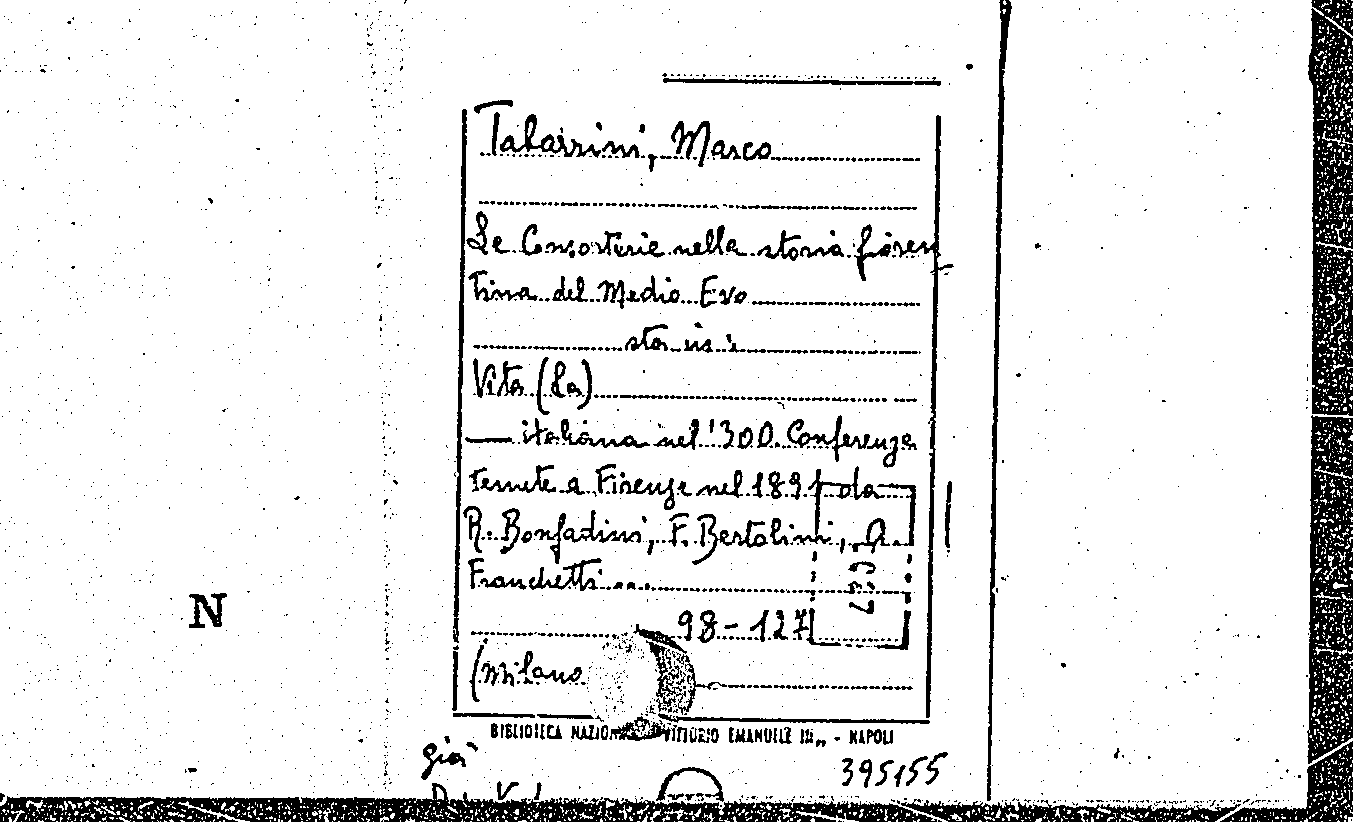 Tabarrini, Marco
Le Consorterie nella storia fioren
tina del Medio Evo
Vita (La)
— italiana nel '300. Conferenze
tenute a Firenze nel 1891 da
R. Bonfadini, F. Bertolini, A.
Franchetti ...
98-127
(Milano
N
BIBLIOTECA VITTORIO EMANUELE III„ - NAPOLI
già
395155